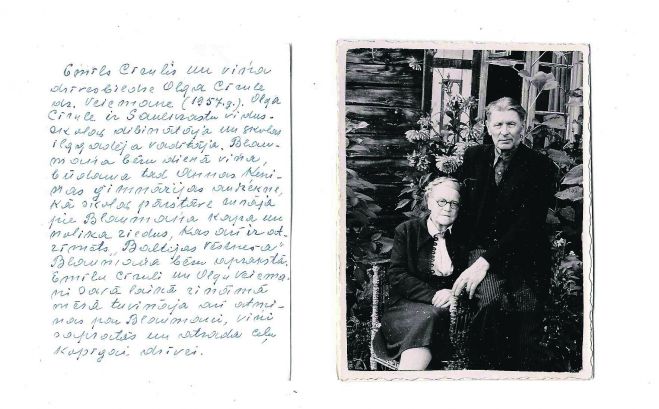 Emīls Cīrulis un viņa
dzīvesbiedre Olga Cīrule
dz. Veiemane (1957.g.). Olga
Cīrule ir Saulrestu vidus-
skolas dibinātāja un skolas
ilggadēja vadītāja. Blau-
maņa bēru dienā viņa,
būdama tad Annas Ķeni-
ņas ģimnāzijas audzekne,
kā skolas pārstāve runāja
pie Blaumaņa kapa un
nolika ziedus, kas arī ir at-
zīmēts „Baltijas Vēstneša”
Blaumaņa bēru aprakstā.
Emīlu Cīruli un Olgu Veiema-
ni savā laikā zināmā
mērā tuvināja arī atmi-
ņas par Blaumani, viņi
sapratās un atrada ceļu
kopīgai dzīvei.